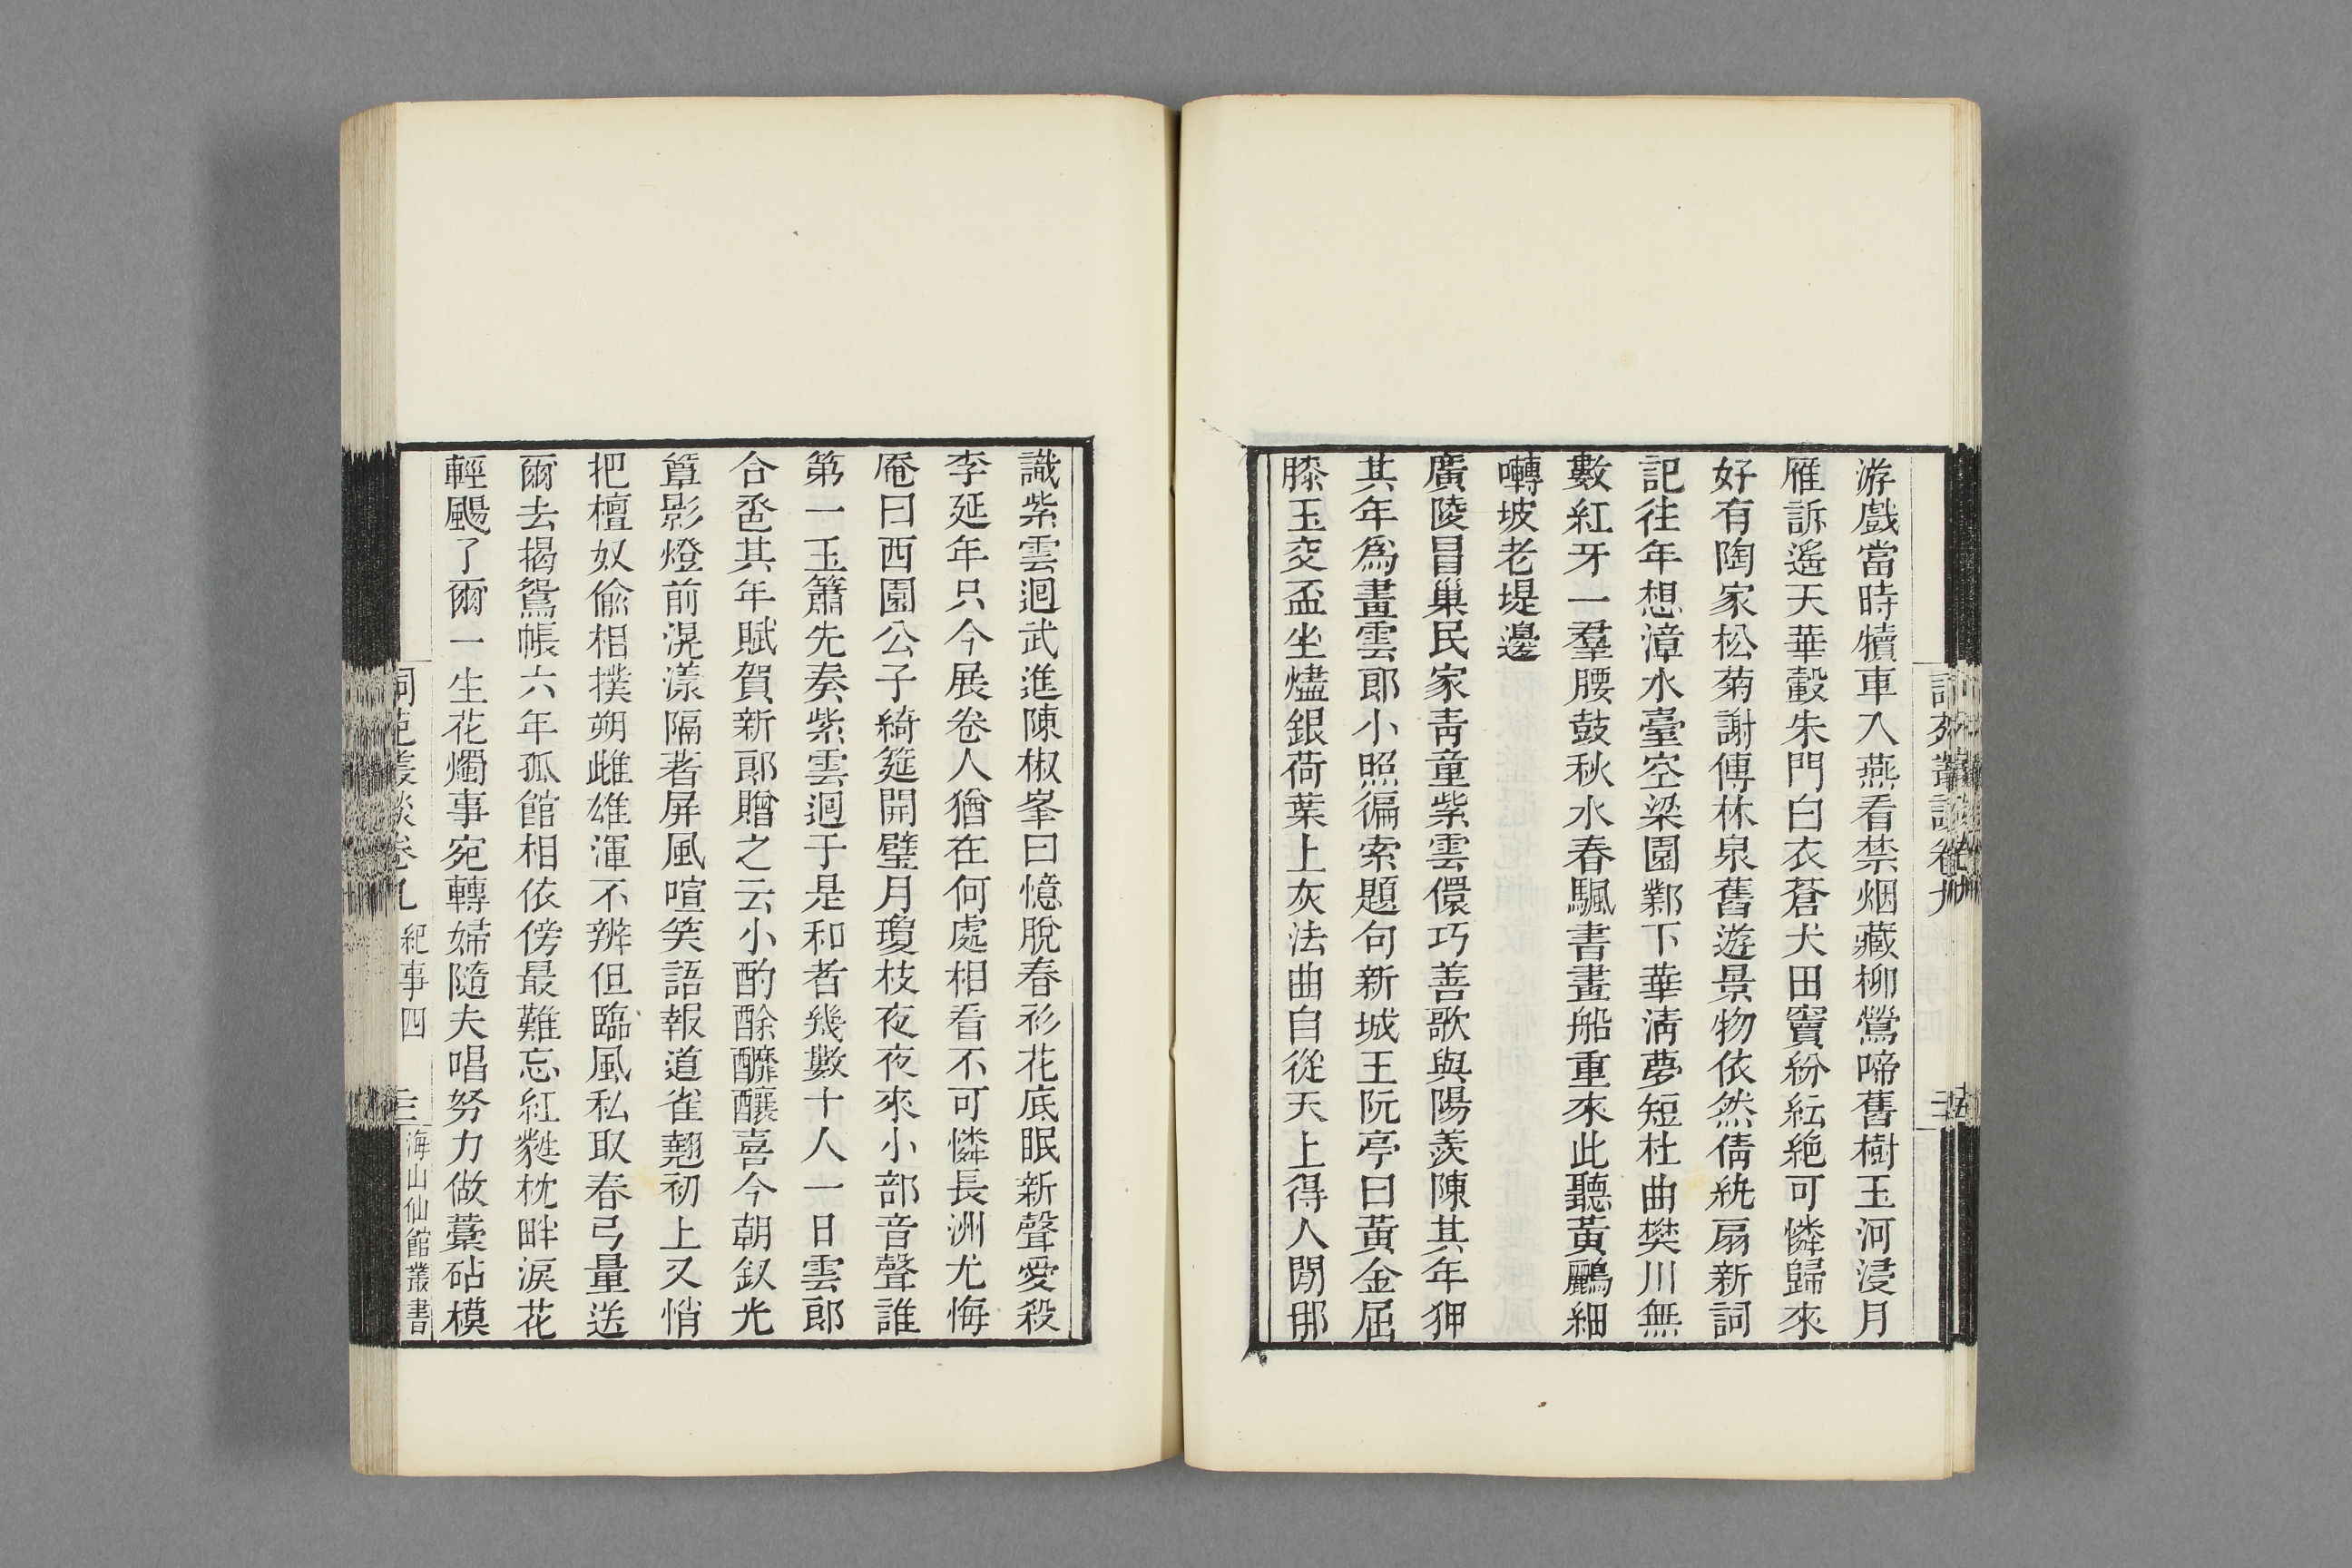 游戲當時犢車入燕看禁烟藏柳鶯啼舊樹玉河浸月
雁訴遙天華轂朱門白衣蒼犬田竇紛紜絶可憐歸來
好有陶家松菊謝傅林泉舊遊景物依然倩紈扇新詞
記往年想漳水臺空梁園鄴下華淸夢短杜曲樊川無
數紅牙一羣腰鼓秋水春颿書畫船重來此聽黃鸝細
囀坡老堤邊
廣陵冒巢民家靑童紫雲儇巧善歌與陽羨陳其年狎
其年爲畫雲郎小照徧索題句新城王阮亭曰黃金屈
膝玉交盃坐燼銀荷葉上灰法曲自從天上得人閒那
識紫雲迴武進陳椒峯曰憶脫春衫花底眠新聲愛殺
李延年只今展卷人猶在何處相看不可憐長洲尤悔
庵曰西園公子綺筵開璧月瓊枝夜夜來小部音聲誰
第一玉簫先奏紫雲迴于是和者幾數十人一日雲郎
合卺其年賦賀新郎贈之云小酌酴醾釀喜今朝釵光
簟影燈前滉漾隔著屏風喧笑語報道雀翹初上又悄
把檀奴偸相撲朔雌雄渾不辨但臨風私取春弓量送
爾去揭鴛帳六年孤館相依傍最難忘紅蕤枕畔淚花
輕颺了爾一生花燭事宛轉婦隨夫唱努力做藁砧模
詞苑叢談卷九 紀事四 三 海山仙館叢書